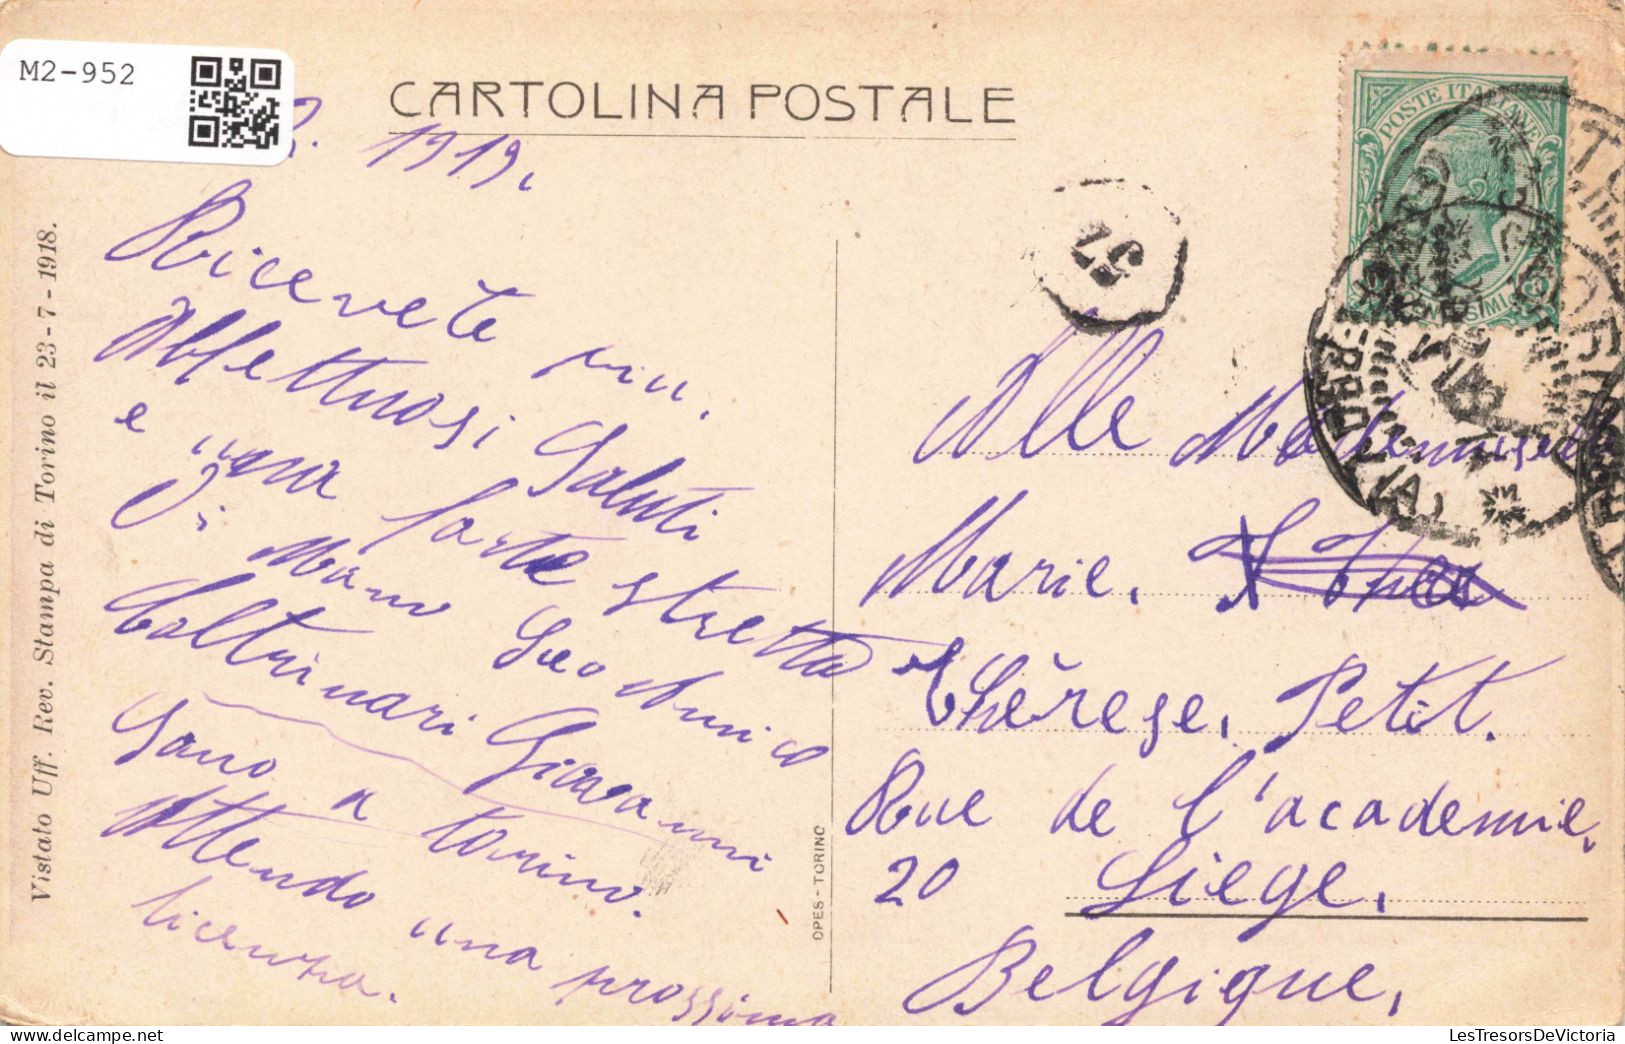 M2-952
CARTOLINA POSTALE
1919.
Ricevete
Affettuosi Saluti
e una forte stretta
Di Mano
Coltrinari Giovanni
Sono a torino.
Attendo una prossima
licenza.
Vistato Uff. Rev. Stampa di Torino il 23-7-1918.
OPES - TORINO
57
POSTE ITALIANE
Alle Mademuselle
Marie.
Thèrese, Petit.
Rue de l'academie,
20 Liege,
Belgique,
LesTresorsDeVictoria